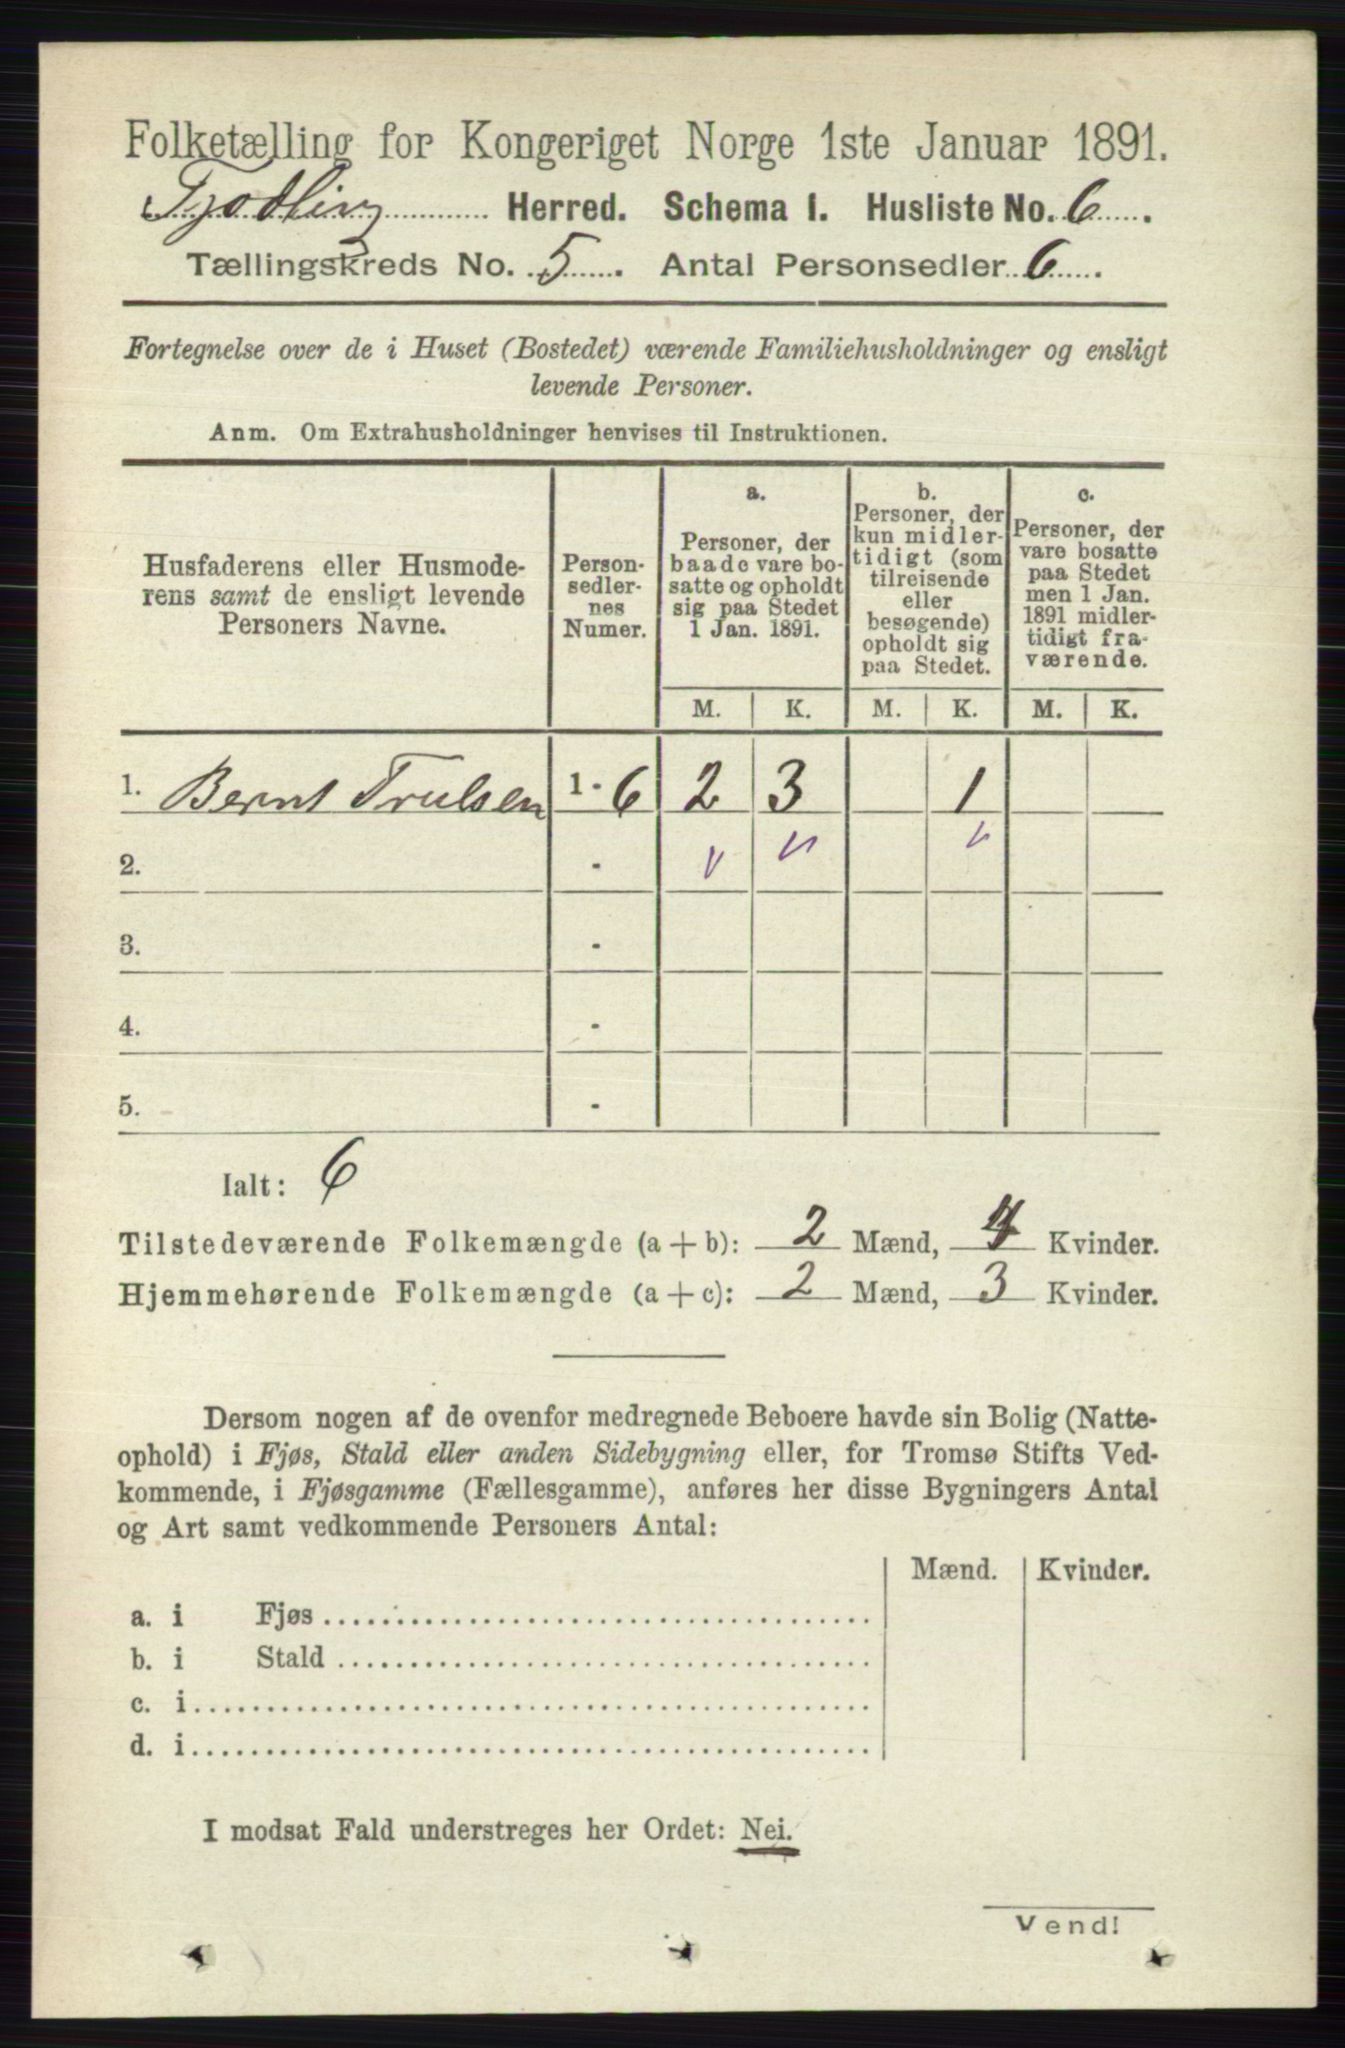 Folketælling for Kongeriget Norge 1ste Januar 1891.
Tjodling Herred. Schema I. Husliste No. 6.
Tællingskreds No. 5. Antal Personsedler 6.
Fortegnelse over de i Huset (Bostedet) værende Familiehusholdninger og ensligt
levende Personer.
Anm. Om Extrahusholdninger henvises til Instruktionen.
Husfaderens eller Husmode-
rens samt de ensligt levende
Personers Navne.
Person-
sedler-
nes
Numer.
a.
Personer, der
baade vare bo-
satte og opholdt
sig paa Stedet
1 Jan. 1891.
b.
Personer, der
kun midler-
tidigt (som
tilreisende
eller
besøgende)
opholdt sig
paa Stedet.
c.
Personer, der
vare bosatte
paa Stedet
men 1 Jan.
1891 midler-
tidigt fra-
værende.
M. K. M. K. M. K.
1. Bernt Trulsen 1 - 6 2 3 1
2. -
3. -
4. -
5. -
Ialt: 6
Tilstedeværende Folkemængde (a + b): 2 Mænd, 4 Kvinder.
Hjemmehørende Folkemængde (a + c): 2 Mænd, 3 Kvinder.
Dersom nogen af de ovenfor medregnede Beboere havde sin Bolig (Natte-
ophold) i Fjøs, Stald eller anden Sidebygning eller, for Tromsø Stifts Ved-
kommende, i Fjøsgamme (Fællesgamme), anføres her disse Bygningers Antal
og Art samt vedkommende Personers Antal:
Mænd. Kvinder.
a. i Fjøs
b. i Stald
c. i
d. i
I modsat Fald understreges her Ordet: Nei.
Vend!